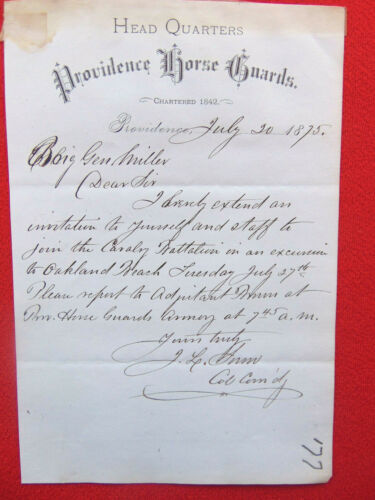 HEAD QUARTERS
Providence Horse Guards.
CHARTERED 1842.
Providence, July 20 1875.
Brig Gen Miller
Dear Sir
I hereby extend an
invitation to yourself and staff to
join the Cavalry Battalion in an excursion
to Oakland Beach Tuesday July 27th.
Please report to Adjutant at
Prov. Horse Guards Armory at 7 45 a.m.
Yours truly
J. L.
Col Com'dg
177